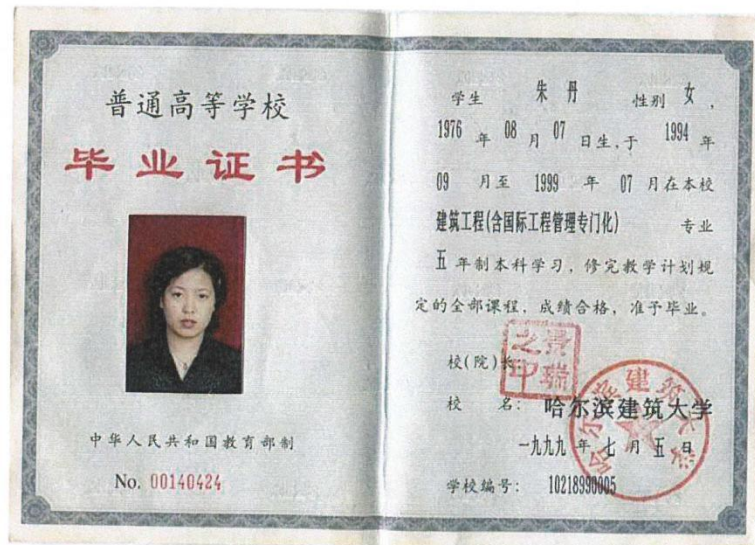 普通高等学校
毕业证书
中华人民共和国教育部制
No. 00140424
学生 朱丹 性别 女,
1976 年 08 月 07 日生,于 1994 年
09 月至 1999 年 07 月在本校
建筑工程(含国际工程管理专门化) 专业
五 年制本科学习,修完教学计划规
定的全部课程,成绩合格,准予毕业。
校(院)长:
景瑞之印
校 名: 哈尔滨建筑大学
哈尔滨建筑大学
一九九九 年 七 月 五 日
学校编号: 10218990005